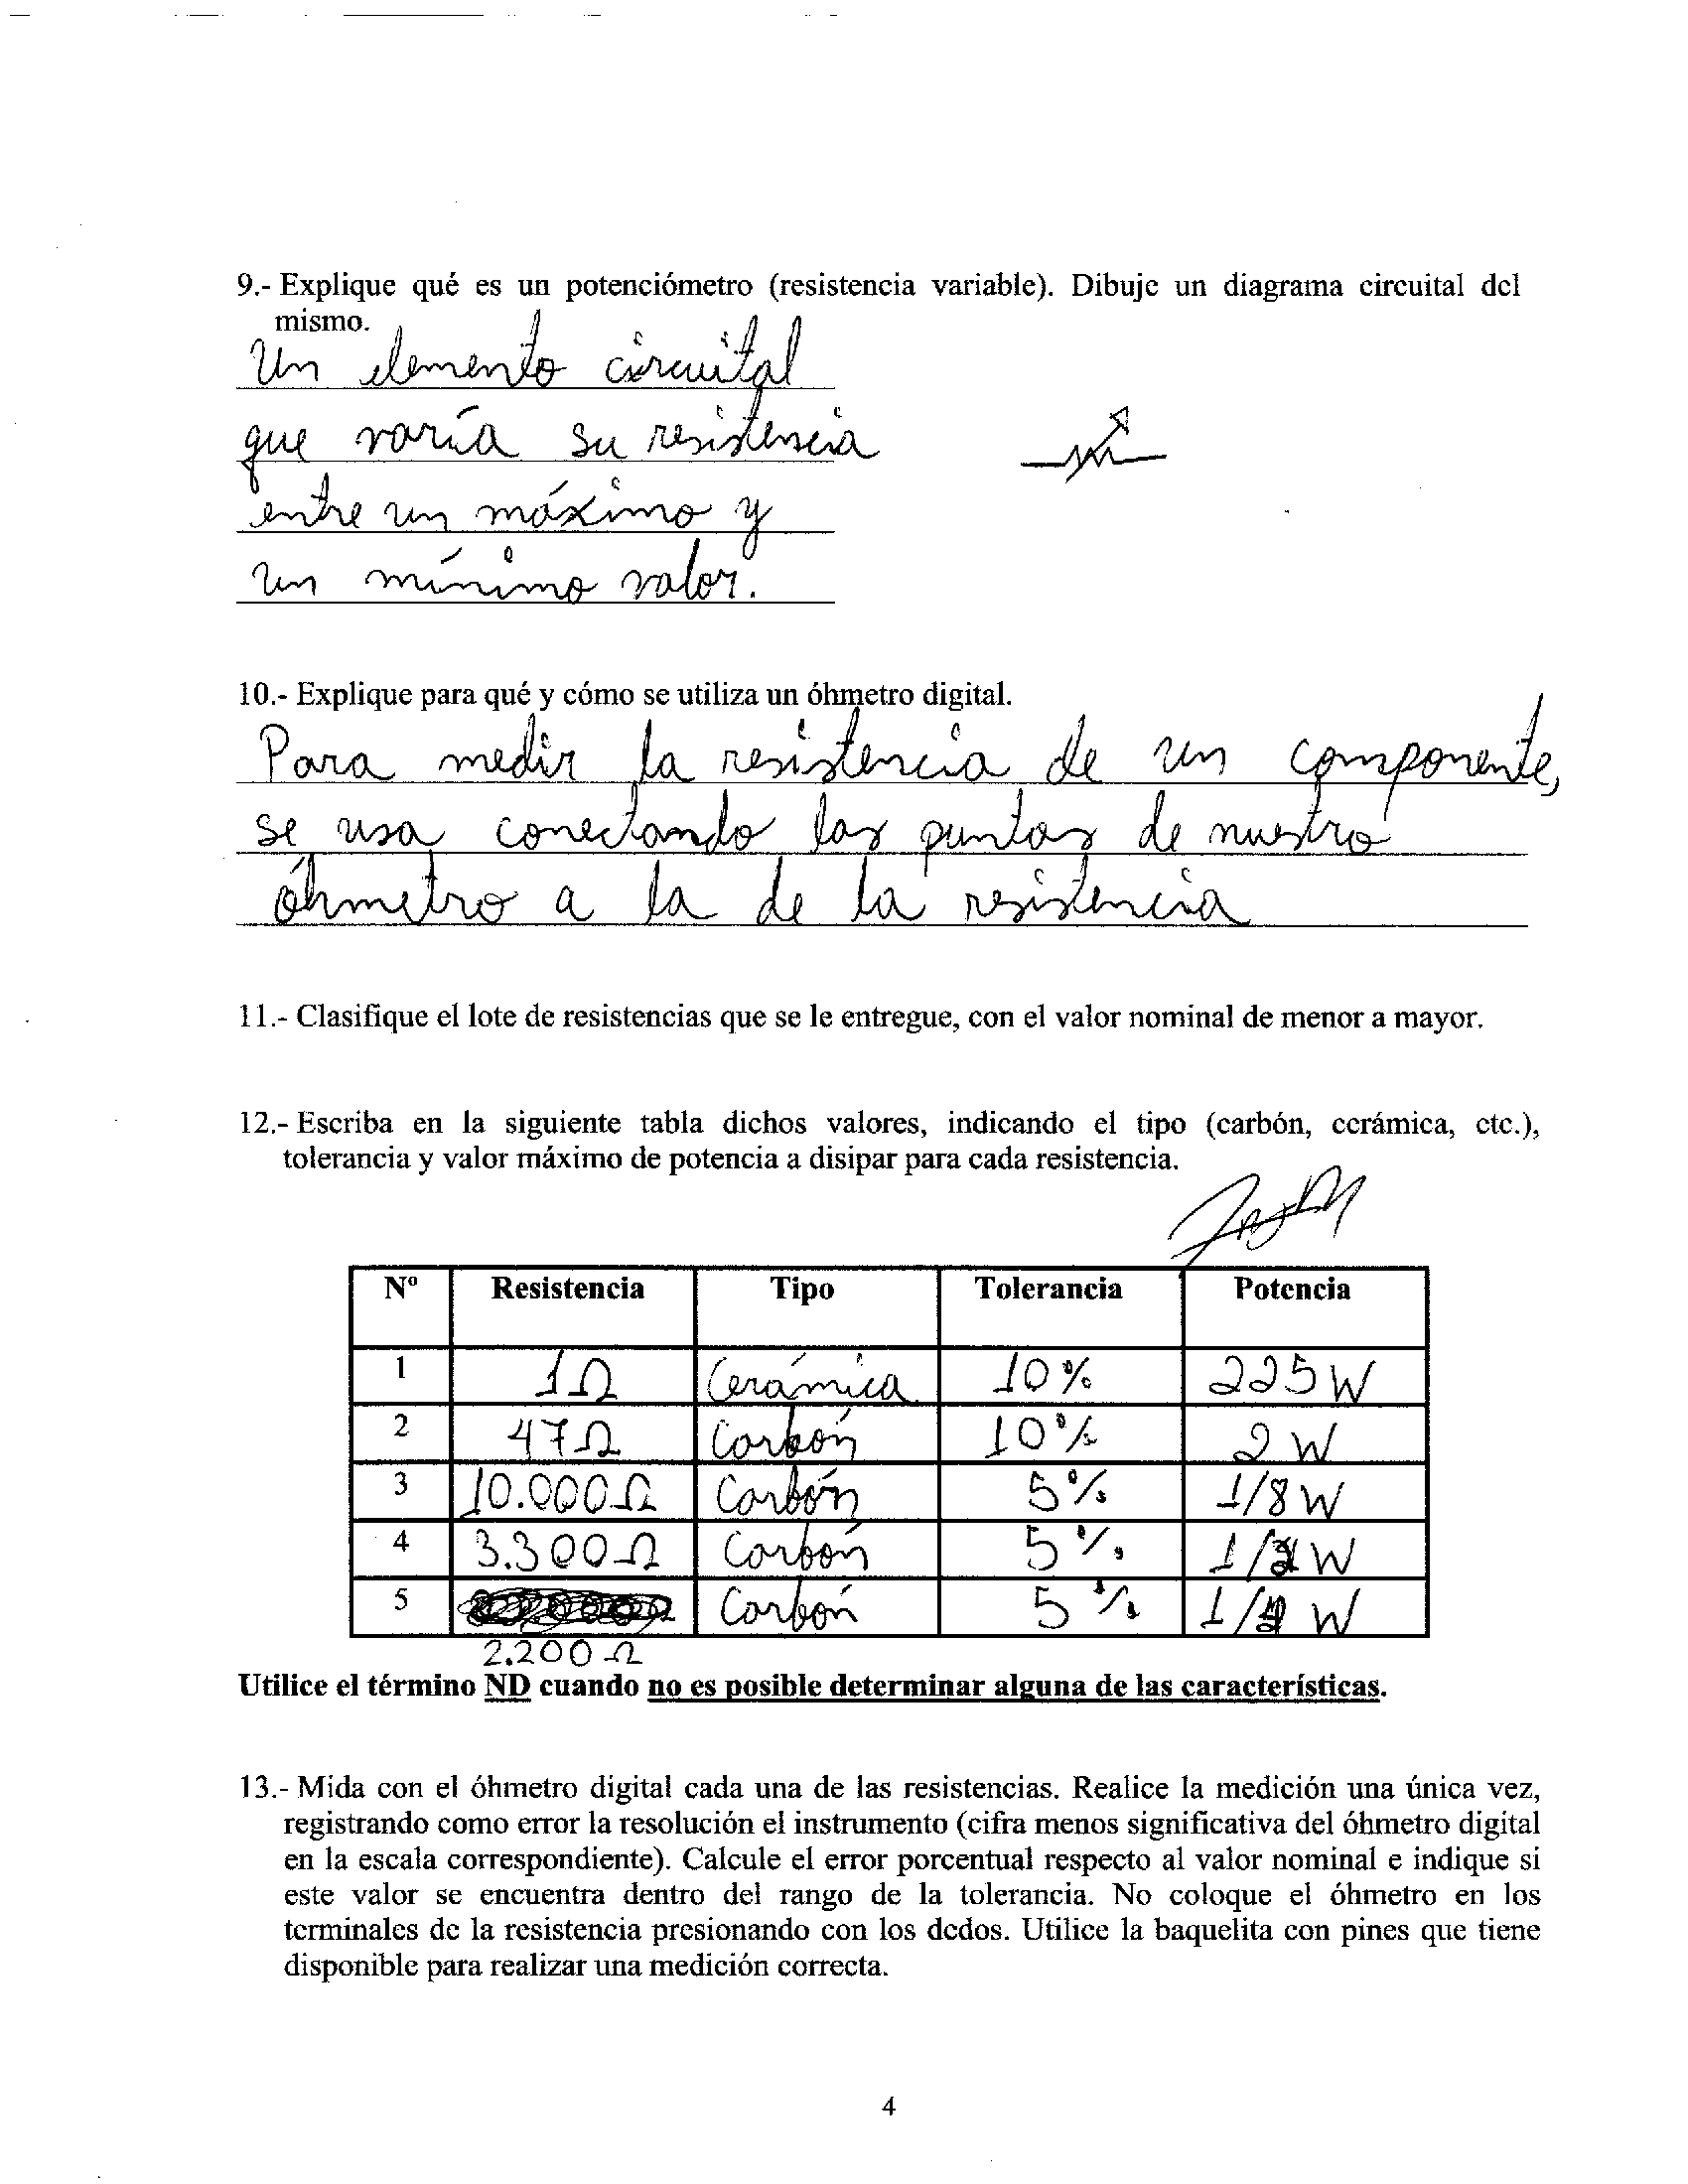 9.- Explique qué es un potenciómetro (resistencia variable). Dibuje un diagrama circuital del
mismo.
Un elemento circuital
que varía su resistencia
entre un máximo y
un mínimo valor.
10.- Explique para qué y cómo se utiliza un óhmetro digital.
Para medir la resistencia de un componente,
se usa conectando las puntas de nuestro
óhmetro a la de la resistencia
11.- Clasifique el lote de resistencias que se le entregue, con el valor nominal de menor a mayor.
12.- Escriba en la siguiente tabla dichos valores, indicando el tipo (carbón, cerámica, etc.),
tolerancia y valor máximo de potencia a disipar para cada resistencia.
Nº Resistencia Tipo Tolerancia Potencia
1 1Ω Cerámica 10% 225W
2 47Ω Carbón 10% 2W
3 10.000Ω Carbón 5% 1/8W
4 3.300Ω Carbón 5%
5 Carbón 5%
2.200Ω
Utilice el término ND cuando no es posible determinar alguna de las características.
13.- Mida con el óhmetro digital cada una de las resistencias. Realice la medición una única vez,
registrando como error la resolución el instrumento (cifra menos significativa del óhmetro digital
en la escala correspondiente). Calcule el error porcentual respecto al valor nominal e indique si
este valor se encuentra dentro del rango de la tolerancia. No coloque el óhmetro en los
terminales de la resistencia presionando con los dedos. Utilice la baquelita con pines que tiene
disponible para realizar una medición correcta.
4